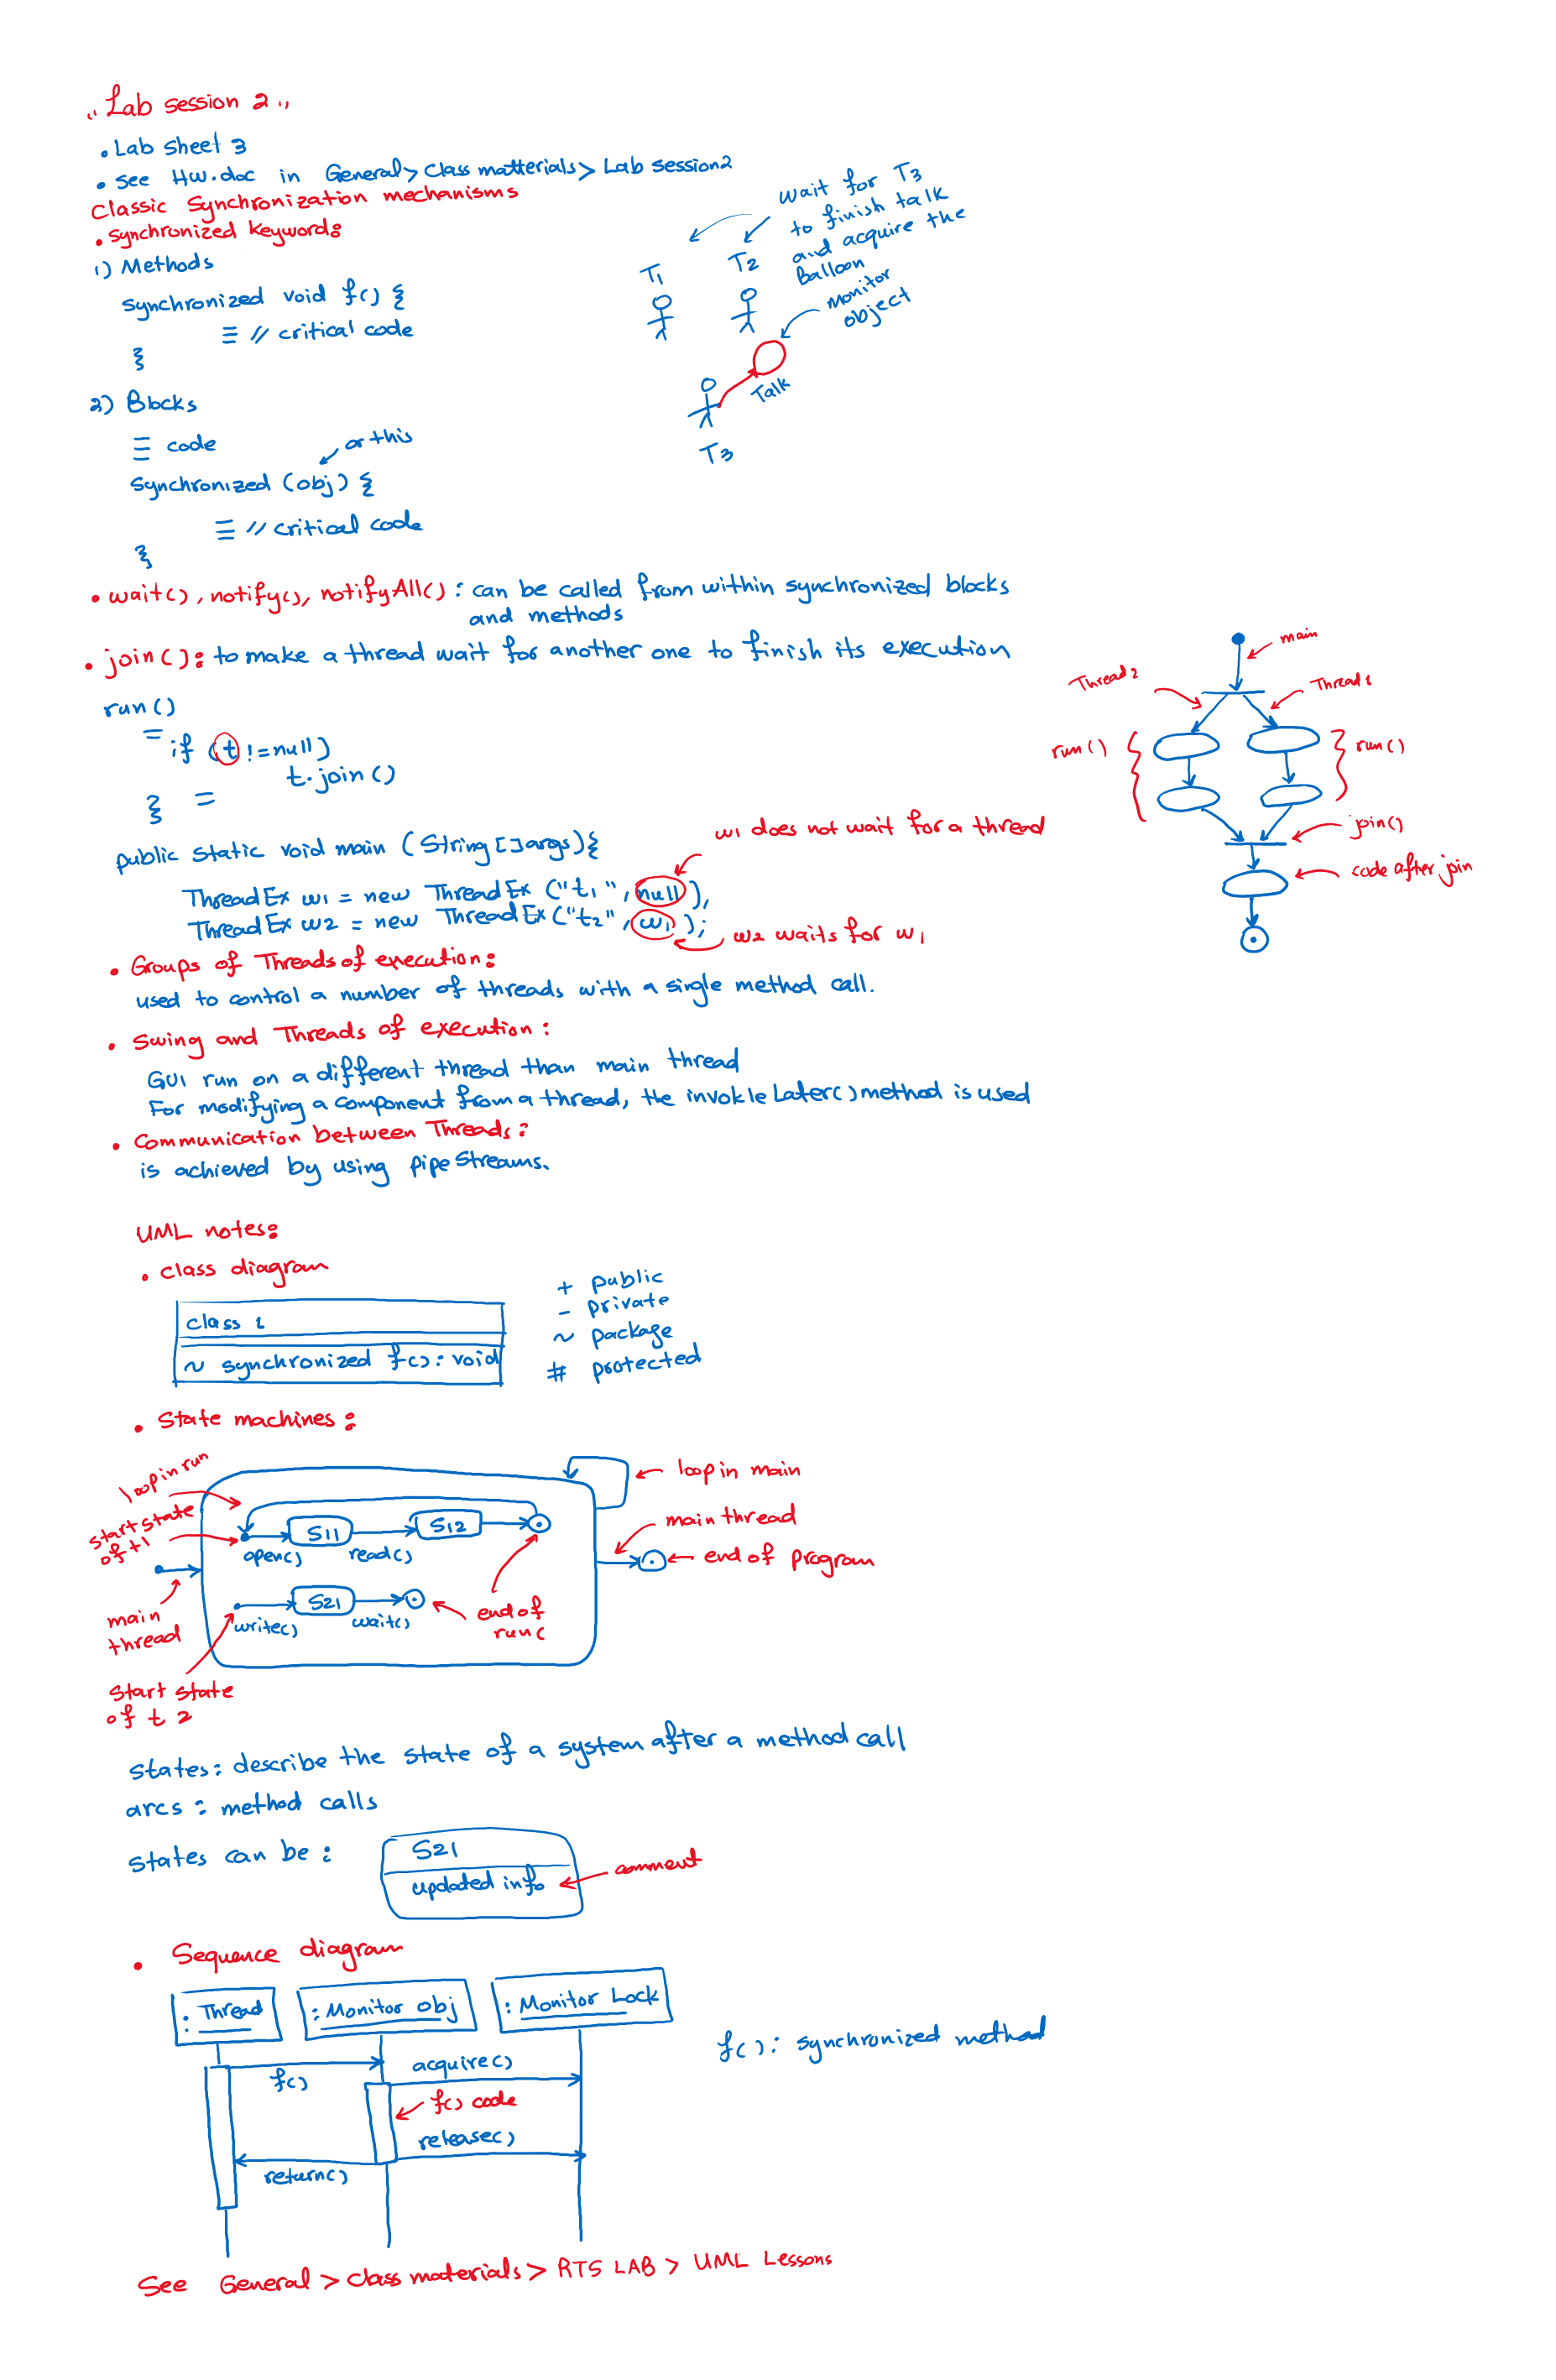 ,, Lab session 2 ,,
• Lab sheet 3
• see Hw.doc in General > Class matterials > Lab session2
Classic Synchronization mechanisms
• synchronized keyword:
1) Methods
synchronized void f() {
// critical code
}
2) Blocks
code
or this
synchronized (obj) {
// critical code
}
wait for T3
to finish talk
and acquire the
Balloon
monitor
object
T1
T2
Talk
T3
• wait(), notify(), notifyAll() : can be called from within synchronized blocks
and methods
• join(): to make a thread wait for another one to finish its execution
run()
if (t != null)
t.join()
}
public static void main (String []args){
w1 does not wait for a thread
ThreadEx w1 = new ThreadEx ("t1", null),
ThreadEx w2 = new ThreadEx("t2", w1);
w2 waits for w1
main
Thread2
Thread1
run()
run()
join()
code after join
• Groups of Threads of execution:
used to control a number of threads with a single method call.
• Swing and Threads of execution:
GUI run on a different thread than main thread
For modifying a component from a thread, the invokleLater() method is used
• Communication between Threads:
is achieved by using pipe streams.
UML notes:
• class diagram
class 1
~ synchronized f(): void
+ public
- private
~ package
# protected
• State machines:
loop in run
start state
of t1
loop in main
main thread
end of program
S11
S12
open()
read()
S21
write()
wait()
end of
run(
main
thread
start state
of t 2
states: describe the state of a system after a method call
arcs: method calls
states can be:
S21
updated info
comment
• Sequence diagram
: Thread
: Monitor obj
: Monitor Lock
f(): synchronized method
f()
acquire()
f() code
release()
return()
See General > class materials > RTS LAB > UML Lessons